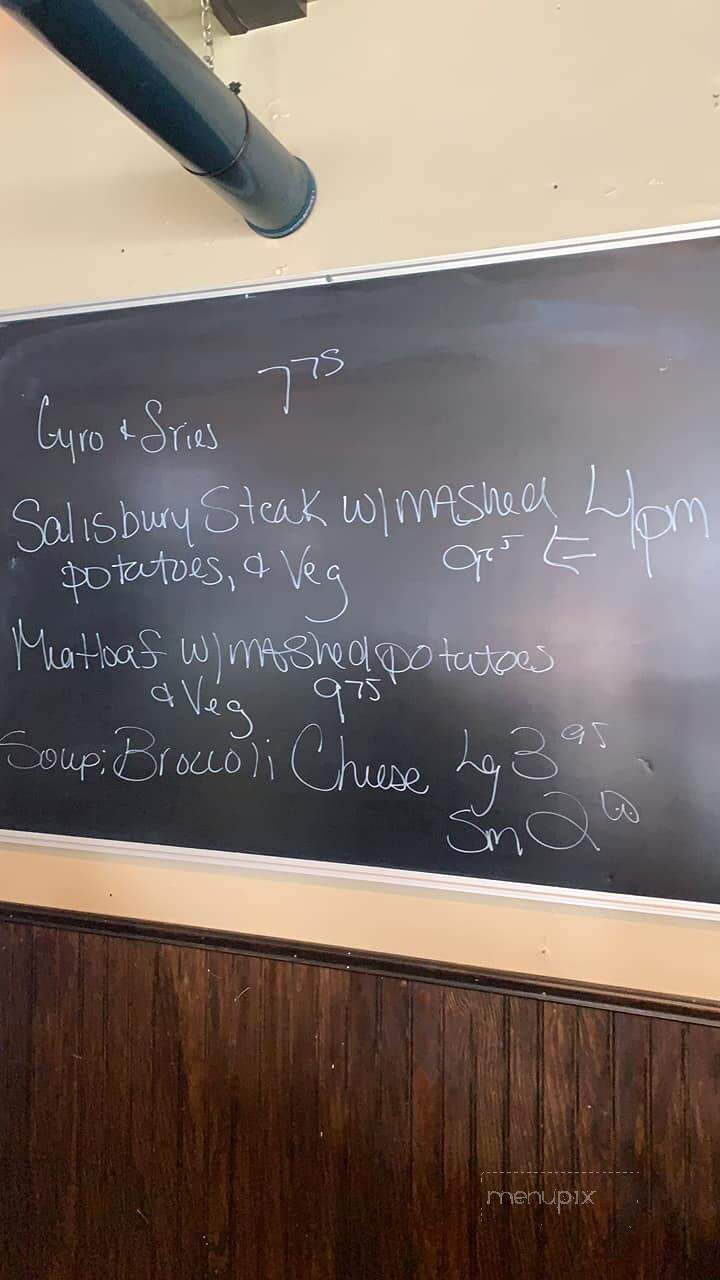 7 75
Gyro & Fries
Salisbury Steak w/ mashed 4pm
potatoes, & Veg 9 75 ⇐
Meatloaf w/ mashed potatoes
& Veg 9 75
Soup: Broccoli Cheese Lg 3 95
Sm 2
menupix